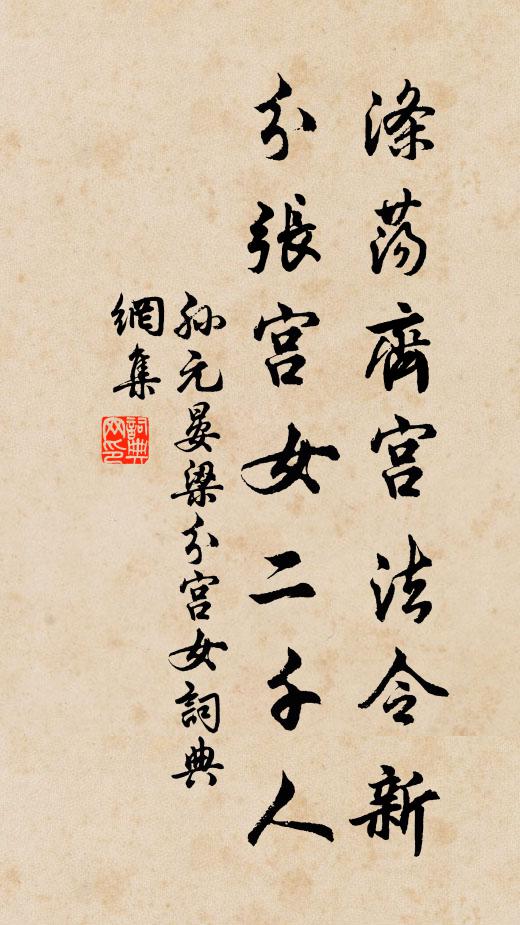 滌蕩齊宮法令新
分張宮女二千人
孫元晏梁分宮女詞典
網集
詞典网印